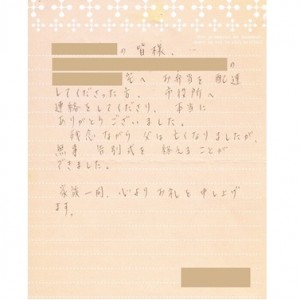 の皆様、
の
宅へ お弁当を 配達
してくださった方、 市役所へ
連絡をしてくださり、 本当に
ありがとうございました。
残念ながら 父は亡くなりましたが、
無事 告別式を 終えることが
できました。
家族一同、心より お礼を 申し上げ
ます。